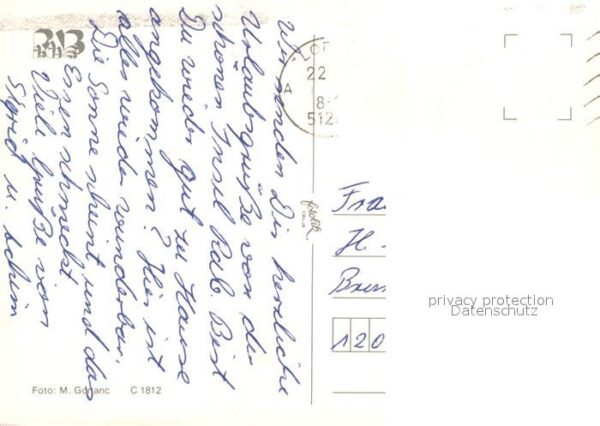 Wir senden Dir herzliche
Urlaubsgrüße von der
schönen Insel Rab. Bist
Du wieder gut zu Hause
angekommen? Hier ist
alles wieder wunderbar.
Die Sonne scheint und das
Essen schmeckt
Viele Grüße von
Sigrid u. Achim
22
8-
512
A
Fra
H.
120
privacy protection
Datenschutz
Foto: M. Gorjanc C 1812